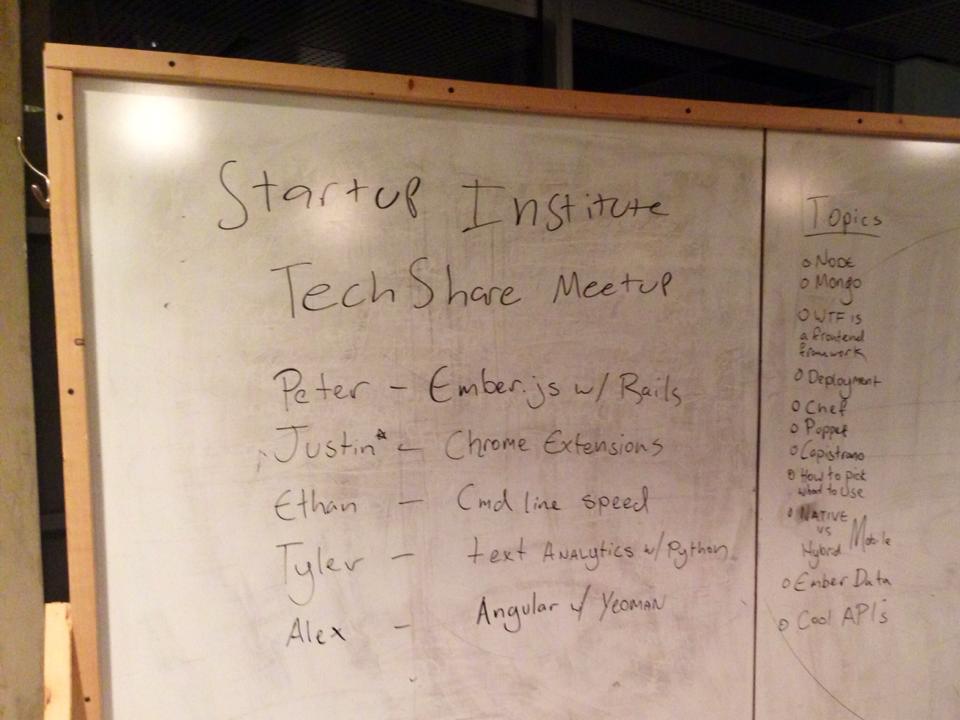 Startup Institute
TechShare Meetup
Peter - Ember.js w/ Rails
Justin* - Chrome Extensions
Ethan - Cmd line speed
Tyler - text Analytics w/ Python
Alex - Angular w/ Yeoman
Topics
o Node
o Mongo
o WTF is
a frontend
framework
o Deployment
o Chef
o Puppet
o Capistrano
o How to pick
what to use
o Native
vs
Hybrid Mobile
o Ember Data
o Cool APIs